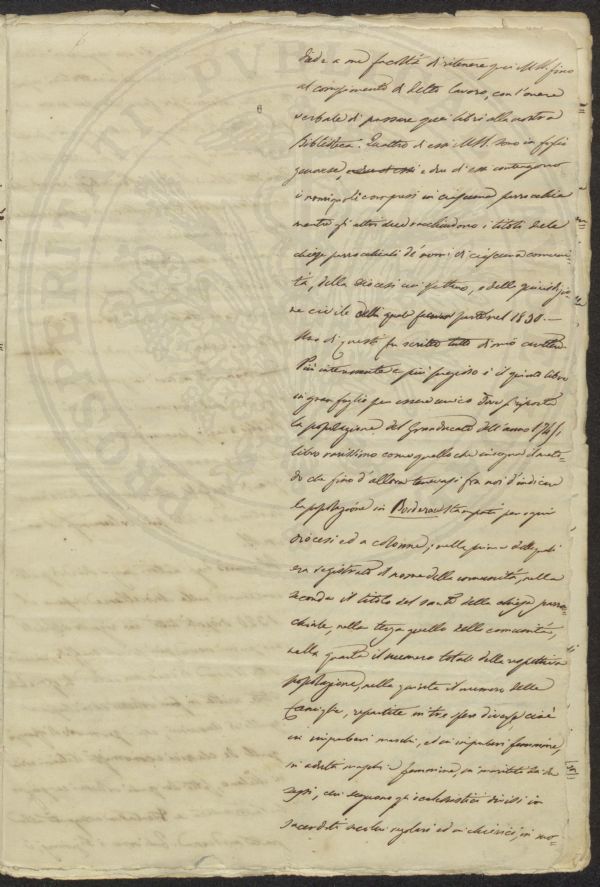 diede a me facoltà di ritenere qui MSS. fino
al compimento di detto lavoro, con l'onere
verbale di passare quei libri alla nostra
Biblioteca. Quattro di essi MSS. sono in foglio
e due di essi contengono
i popoli compresi in ciascuna parrocchia
mentre gli altri due racchiudono i titoli delle
chiese parrocchiali de' nomi di ciascuna comuni-
tà, della Diocesi cui spettano, e della giurisdizio-
ne civile della qual parte nel 1830. —
Uno di questi fu scritto tutto di mio carattere
Più interessante e più prezioso è il quinto libro
in gran foglio per essere unico dove si riporta
la popolazione del Granducato dell'anno 1745,
libro rarissimo come quello che insegna il meto-
do che fino d'allora tenevasi fra noi d'indicare
la popolazione in stampati per ogni
Diocesi ed a colonne; nella prima delle quali
era registrato il nome della comunità, nella
seconda il titolo del santo della chiesa parro-
chiale, nella terza quello della comunità,
nella quarta il numero totale della respettiva
popolazione, nella quinta il numero delle
famiglie, repartite in tre diverse cioè
in impuberi maschi, ed in impuberi femmine,
in adulti maschi e femmine, in maritati dei due
sessi, cui seguono gli ecclesiastici divisi in
sacerdoti secolari regolari ed in chierici, in mo-